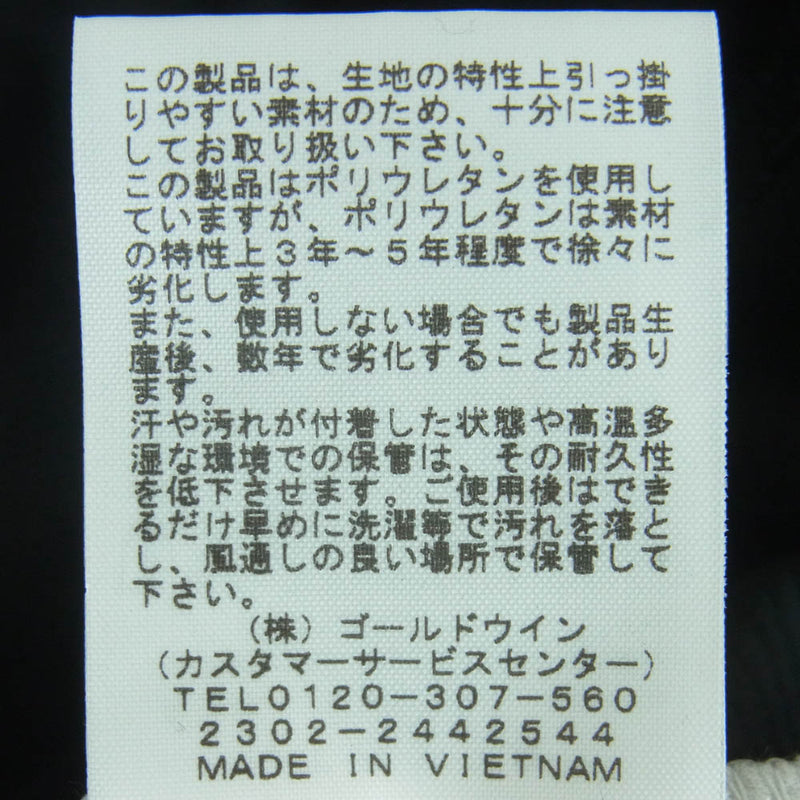 この製品は、生地の特性上引っ掛
りやすい素材のため、十分に注意
してお取り扱い下さい。
この製品はポリウレタンを使用し
ていますが、ポリウレタンは素材
の特性上3年～5年程度で徐々に
劣化します。
また、使用しない場合でも製品生
産後、数年で劣化することがあり
ます。
汗や汚れが付着した状態や高温多
湿な環境での保管は、その耐久性
を低下させます。ご使用後はでき
るだけ早めに洗濯等で汚れを落と
し、風通しの良い場所で保管して
下さい。
(株)ゴールドウイン
(カスタマーサービスセンター)
TEL0120-307-560
2302-2442544
MADE IN VIETNAM